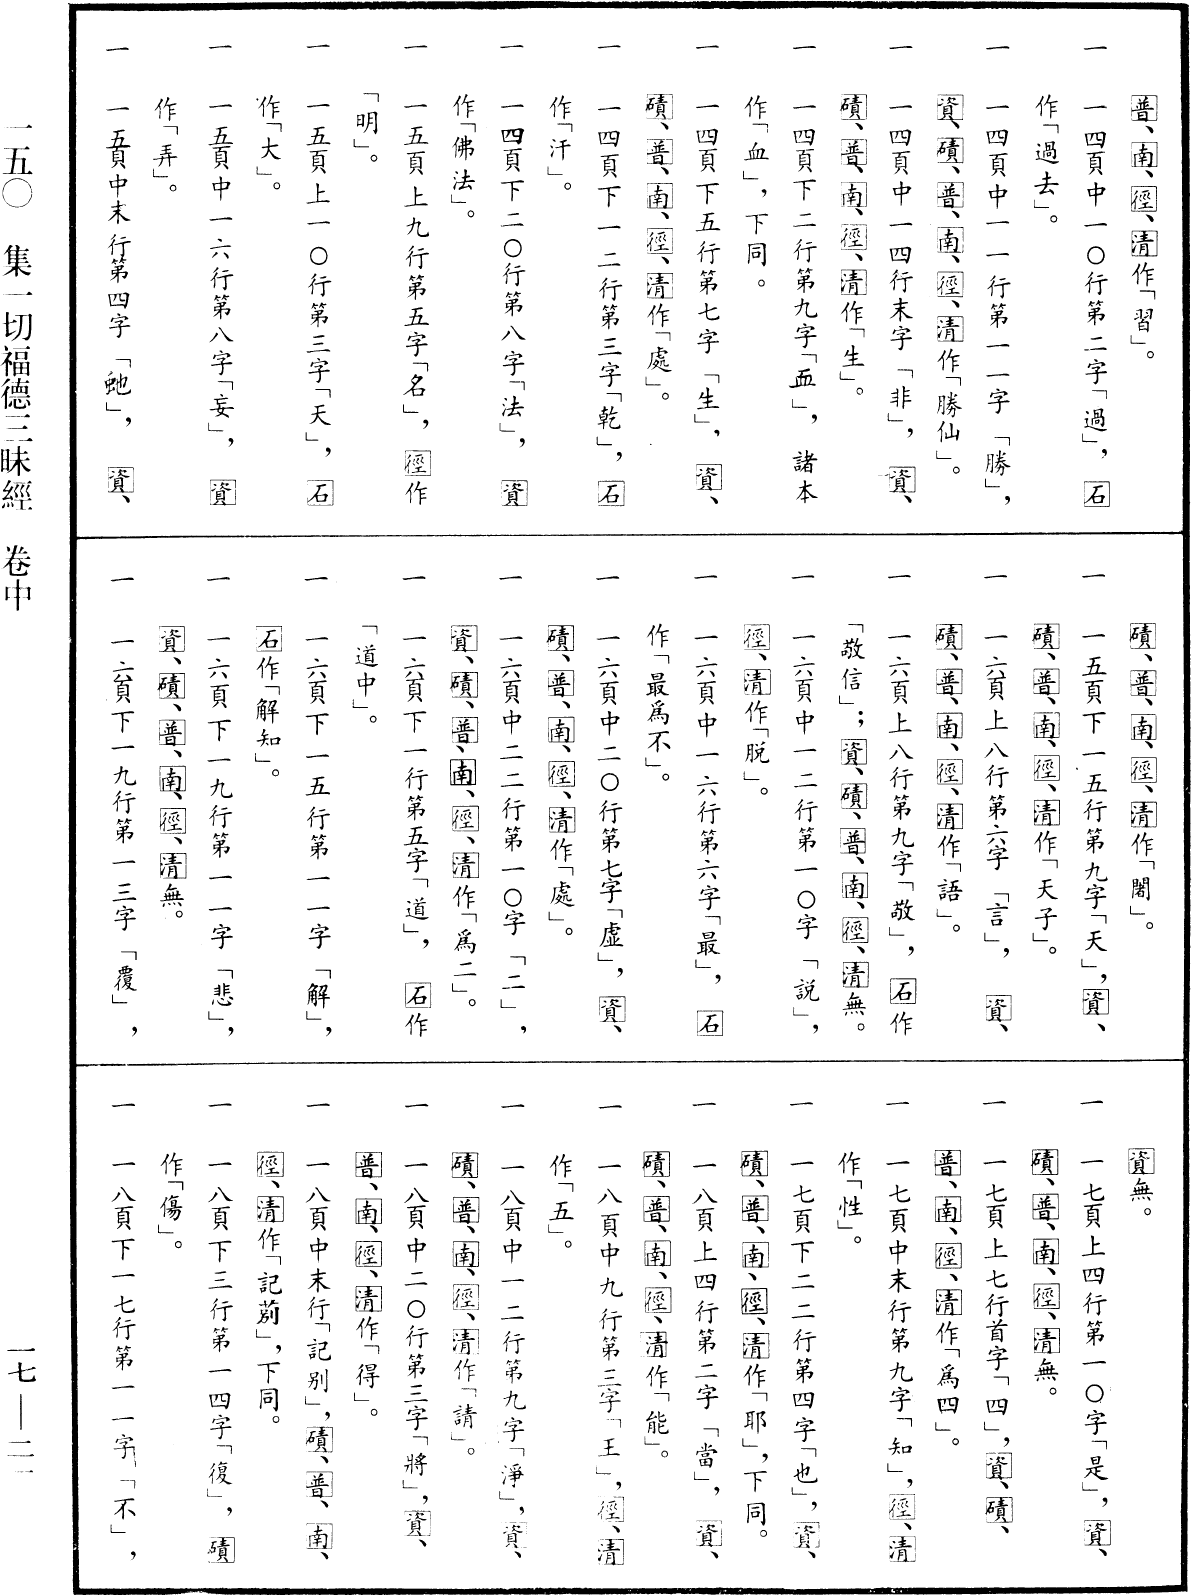 普、南、徑、清作「習」。
一　一四頁中一〇行第二字「過」，石
作「過去」。
一　一四頁中一一行第一一字「勝」，
資、磧、普、南、徑、清作「勝仙」。
一　一四頁中一四行末字「非」，資、
磧、普、南、徑、清作「生」。
一　一四頁下二行第九字「面」，諸本
作「血」，下同。
一　一四頁下五行第七字「生」，資、
磧、普、南、徑、清作「處」。
一　一四頁下一二行第三字「乾」，石
作「汗」。
一　一四頁下二〇行第八字「法」，資
作「佛法」。
一　一五頁上九行第五字「名」，徑作
「明」。
一　一五頁上一〇行第三字「天」，石
作「大」。
一　一五頁中一六行第八字「妄」，資
作「弄」。
一　一五頁中末行第四字「虵」，資、
磧、普、南、徑、清作「闍」。
一　一五頁下一五行第九字「天」，資、
磧、普、南、徑、清作「天子」。
一　一六頁上八行第六字「言」，資、
磧、普、南、徑、清作「語」。
一　一六頁上八行第九字「敬」，石作
「敬信」；資、磧、普、南、徑、清無。
一　一六頁中一二行第一〇字「説」，
徑、清作「脱」。
一　一六頁中一六行第六字「最」，石
作「最爲不」。
一　一六頁中二〇行第七字「虛」，資、
磧、普、南、徑、清作「處」。
一　一六頁中二二行第一〇字「二」，
資、磧、普、南、徑、清作「爲二」。
一　一六頁下一行第五字「道」，石作
「道中」。
一　一六頁下一五行第一一字「解」，
石作「解知」。
一　一六頁下一九行第一一字「悲」，
資、磧、普、南、徑、清無。
一　一六頁下一九行第一三字「覆」，
資無。
一　一七頁上四行第一〇字「是」，資、
磧、普、南、徑、清無。
一　一七頁上七行首字「四」，資、磧、
普、南、徑、清作「爲四」。
一　一七頁中末行第九字「知」，徑、清
作「性」。
一　一七頁下二二行第四字「也」，資、
磧、普、南、徑、清作「耶」，下同。
一　一八頁上四行第二字「當」，資、
磧、普、南、徑、清作「能」。
一　一八頁中九行第三字「王」，徑、清
作「五」。
一　一八頁中一二行第九字「淨」，資、
磧、普、南、徑、清作「請」。
一　一八頁中二〇行第三字「將」，資、
普、南、徑、清作「得」。
一　一八頁中末行「記別」，磧、普、南、
徑、清作「記莂」，下同。
一　一八頁下三行第一四字「復」，磧
作「傷」。
一　一八頁下一七行第一一字「不」，
一五〇　集一切福德三昧經　卷中　一七—二一